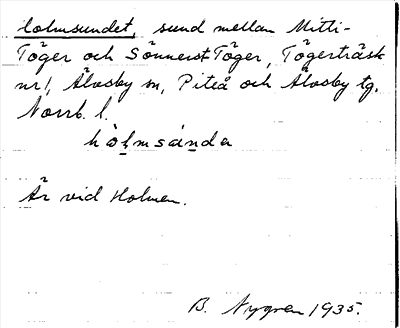 Holmsundet, sund mellan Mitti-
Töger och Sönnerst Töger, Tögerträsk
nr 1, Älvsby sn, Piteå och Älvsby tg.
Norrb. l.
hòḷmsúṇda
Är vid Holmen.
B. Nygren 1935.